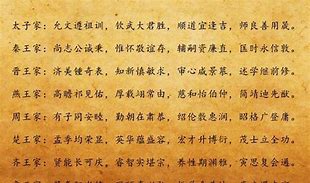 太子家：允文遵祖训，钦武大君胜，顺道宜逢吉，师良善用晟。
秦王家：尚志公诚秉，惟怀敬谊存，辅嗣资廉直，匡时永信敦。
晋王家：济美锺奇表，知新慎敏求，审心咸景慕，述学继前修。
燕王家：高瞻祁见佑，厚载翊常由，慈和怡伯仲，简靖迪先猷。
周王家：有子同安睦，勤朝在肃恭，绍伦敷惠润，昭格广登庸。
楚王家：孟季均荣显，英华蕴盛容，宏才升博衍，茂士立全功。
齐王家：贤能长可庆，睿智实堪宗，养性期渊雅，寅思复会通。